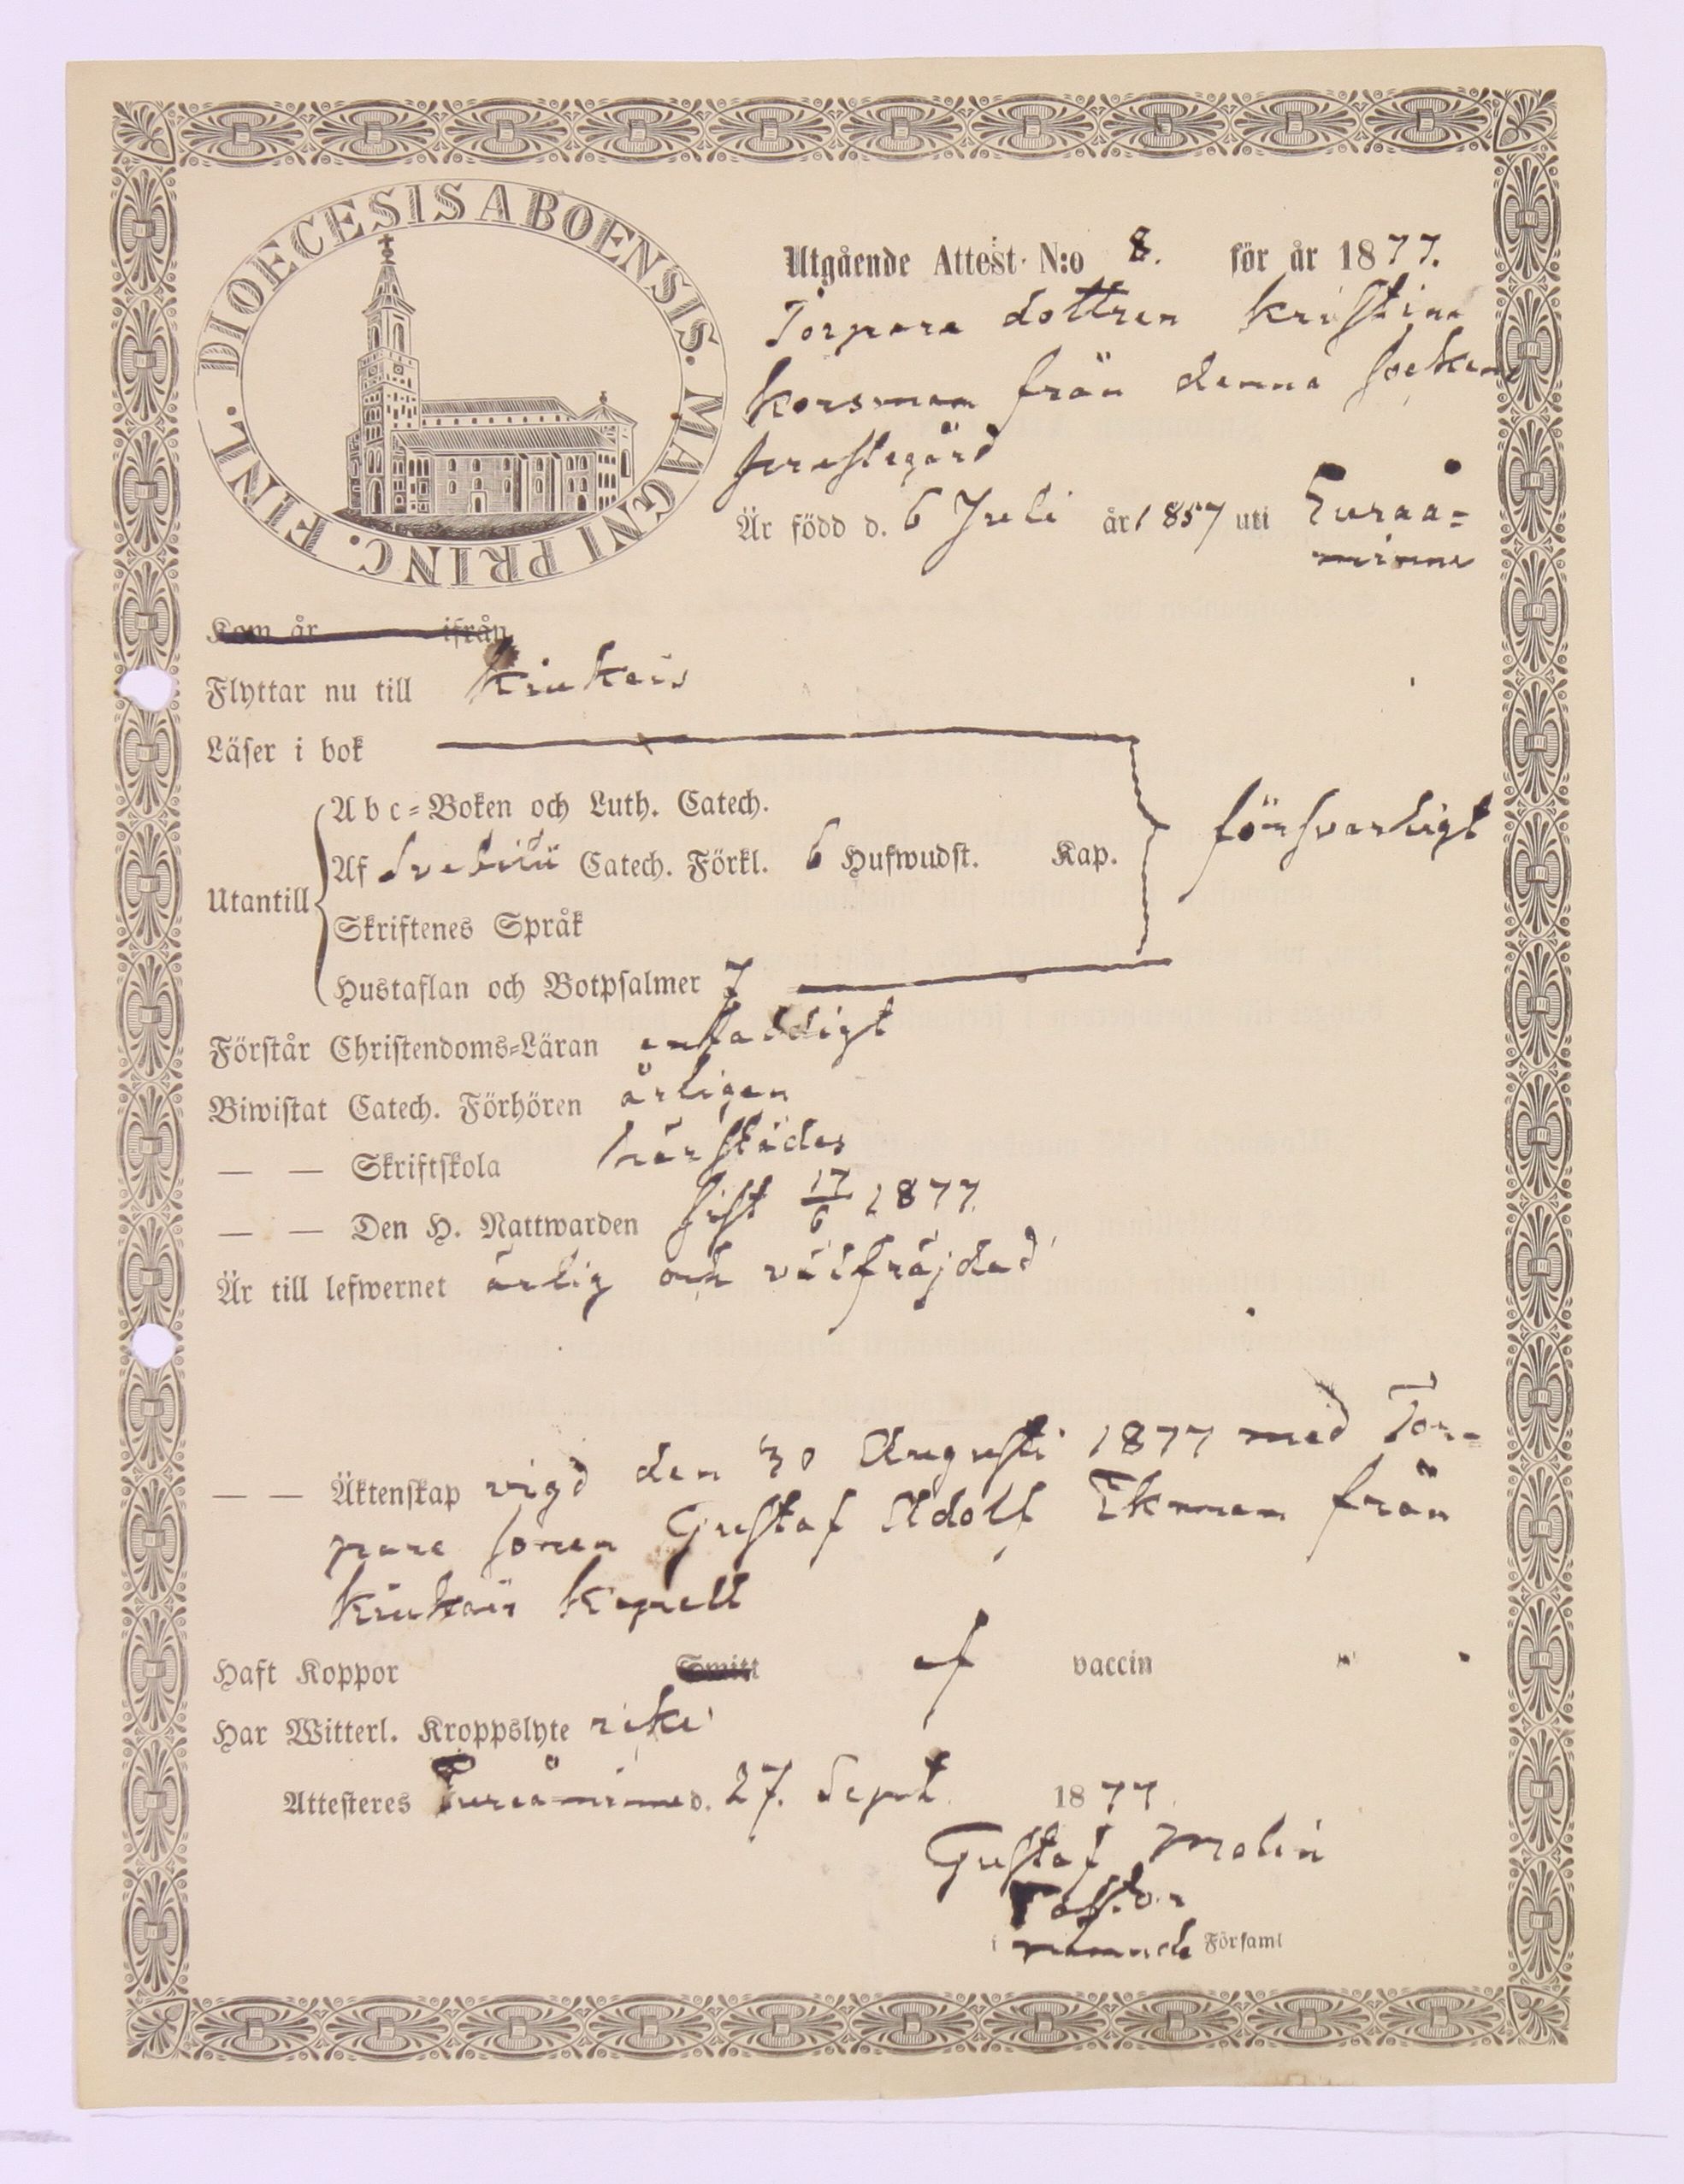 DIOECESIS ABOENSIS. MAGNI PRINC. FINL.
Utgående Attest N:o 8. för år 1877.
Torpare dottren Kristina
Korsman från denna Sockens
prestegård
Är född d. 6 Juli år 1857 uti Euraå=
minne
Kom år ifrån
Flyttar nu till Kiukais
Läser i bok
Abc=Boken och Luth. Catech.
Utantill Af Svebilii Catech. Förkl. 6 Hufwudst. Kap. försvarligt
Skriftenes Språk
Hustaflan och Botpsalmer 7
Förstår Christendoms=Läran enfaldigt
Biwistat Catech. Förhören årligen
— — Skriftskola härstädes
— — Den H. Nattwarden sist 17/6 1877.
Är till lefwernet ärlig och välfräjdad
— — Äktenskap vigd den 30 Augusti 1877 med Tor=
pare sonen Gustaf Adolf Ekman från
Kiukais Kapell
Haft Koppor Smitt af vaccin
Har Witterl. Kroppslyte icke
Attesteres Euraåminne d. 27. Sept. 1877.
Gustaf Molin
Pastor
i Församl